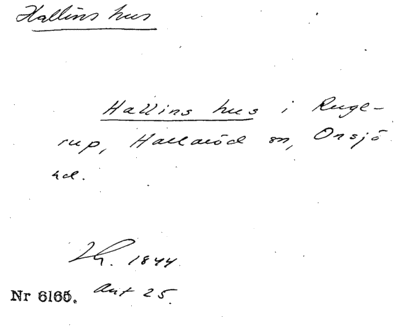 Hallins hus
Hallins hus i Ruge-
rup, Hallaröd sn, Onsjö
hd.
Lh. 1844
Ant 25.
Nr 6165.